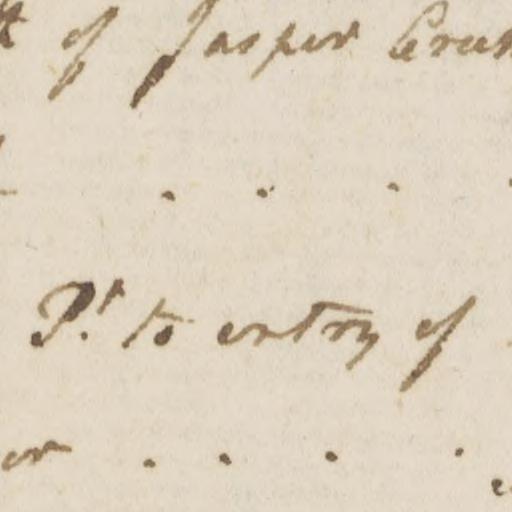 of Jasper
P.t to entry of
or . . . .